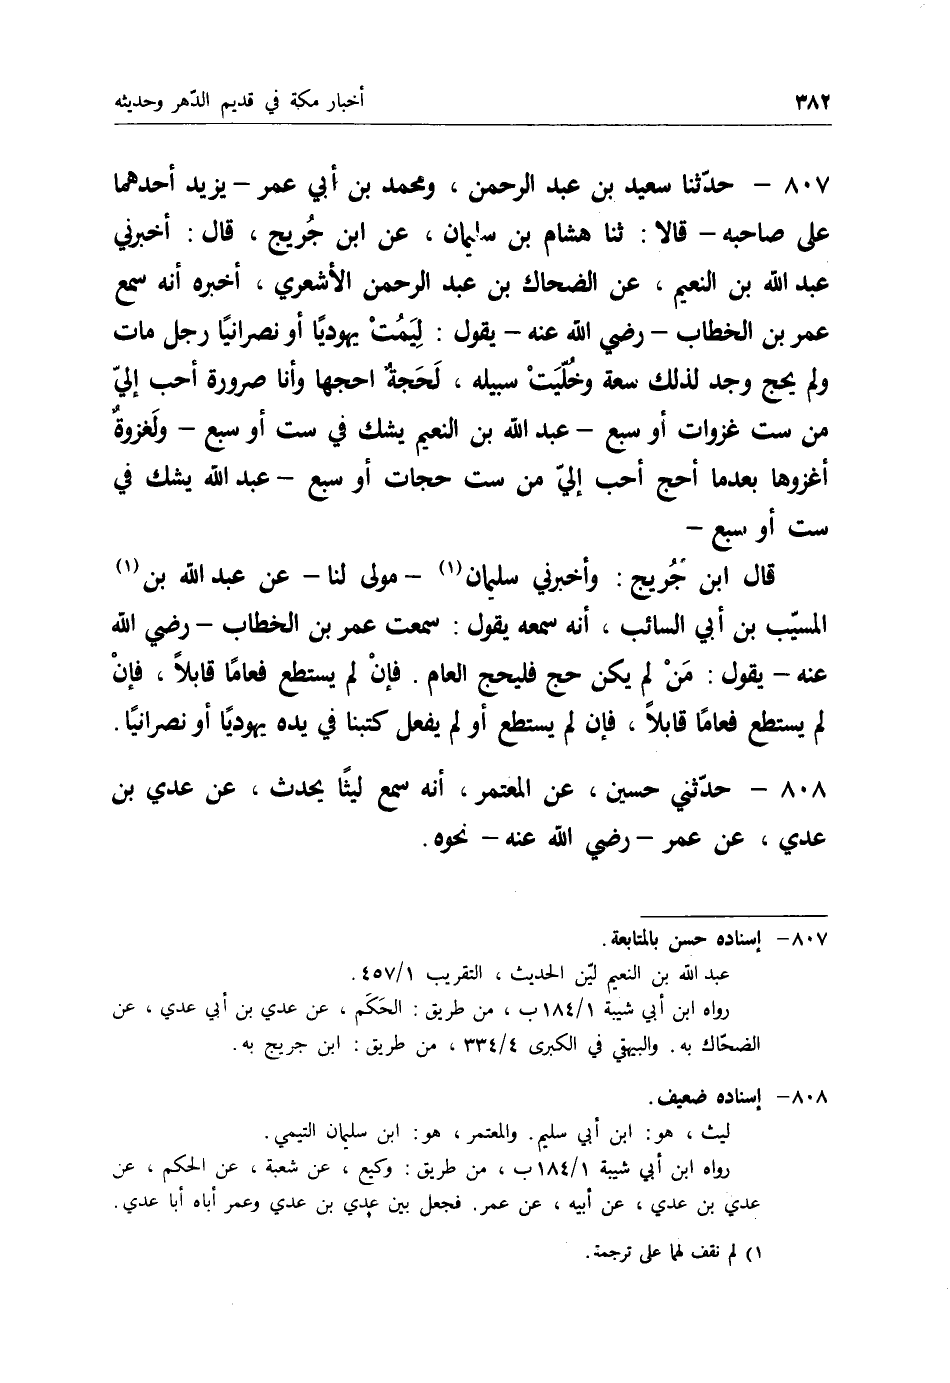 ٣٨٢ أخبار مكة في قديم الدّهر وحديثه
٨٠٧ – حدّثنا سعيد بن عبد الرحمن ، ومحمد بن أبي عمر – يزيد أحدهما
على صاحبه – قالا : ثنا هشام بن سليمان ، عن ابن جُريج ، قال : أخبرني
عبد الله بن النعيم ، عن الضحاك بن عبد الرحمن الأشعري ، أخبره أنه سمع
عمر بن الخطاب – رضي الله عنه – يقول : لِيَمُتْ يهوديًا أو نصرانيًا رجل مات
ولم يحج وجد لذلك سعة وخُلّيَتْ سبيله ، لَحَجةٌ احجها وأنا صرورة أحب إليّ
من ست غزوات أو سبع – عبد الله بن النعيم يشك في ست أو سبع – ولَغزوةٌ
أغزوها بعدما أحج أحب إليّ من ست حجات أو سبع – عبد الله يشك في
ست أو سبع –
قال ابن جُريج : وأخبرني سليمان(١) – مولى لنا – عن عبد الله بن(١)
المسيّب بن أبي السائب ، أنه سمعه يقول : سمعت عمر بن الخطاب – رضي الله
عنه – يقول : مَنْ لم يكن حج فليحج العام . فإنْ لم يستطع فعامًا قابلاً ، فإنْ
لم يستطع فعامًا قابلاً ، فإن لم يستطع أو لم يفعل كتبنا في يده يهوديًا أو نصرانيًا .
٨٠٨ – حدّثني حسين ، عن المعتمر ، أنه سمع ليثًا يحدث ، عن عدي بن
عدي ، عن عمر – رضي الله عنه – نحوه .
٨٠٧– إسناده حسن بالمتابعة .
عبد الله بن النعيم ليّن الحديث ، التقريب ٤٥٧/١ .
رواه ابن أبي شيبة ١٨٤/١ب ، من طريق : الحَكَم ، عن عدي بن أبي عدي ، عن
الضحّاك به . والبيهقي في الكبرى ٣٣٤/٤ ، من طريق : ابن جريج به .
٨٠٨– إسناده ضعيف .
ليث ، هو : ابن أبي سليم . والمعتمر ، هو : ابن سليمان التيمي .
رواه ابن أبي شيبة ١٨٤/١ب ، من طريق : وكيع ، عن شعبة ، عن الحكم ، عن
عدي بن عدي ، عن أبيه ، عن عمر . فجعل بين عدي بن عدي وعمر أباه أبا عدي .
١) لم نقف لهما على ترجمة .